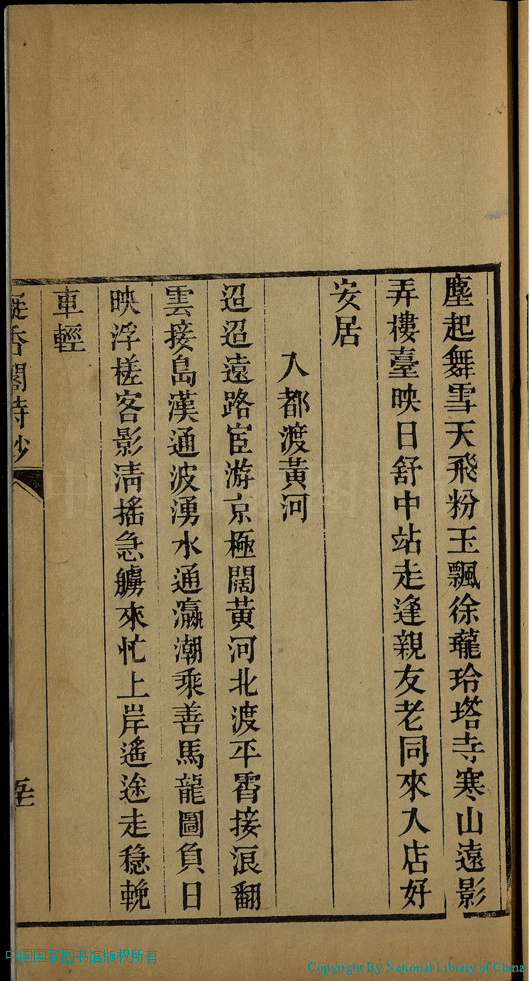 塵起舞雪天飛粉玉飄徐瓏玲塔寺寒山遠影
弄樓臺映日舒中站走逢親友老同來入店好
安居
入都渡黃河
迢迢遠路宦游京極闊黃河北渡平霄接浪翻
雲接島漢通波湧水通瀛潮乘善馬龍圖負日
映浮槎客影清搖急艣來忙上岸遙途走穩輓
車輕
凝香閣詩鈔
中国国家图书馆版权所有
Copyright By National Library of China